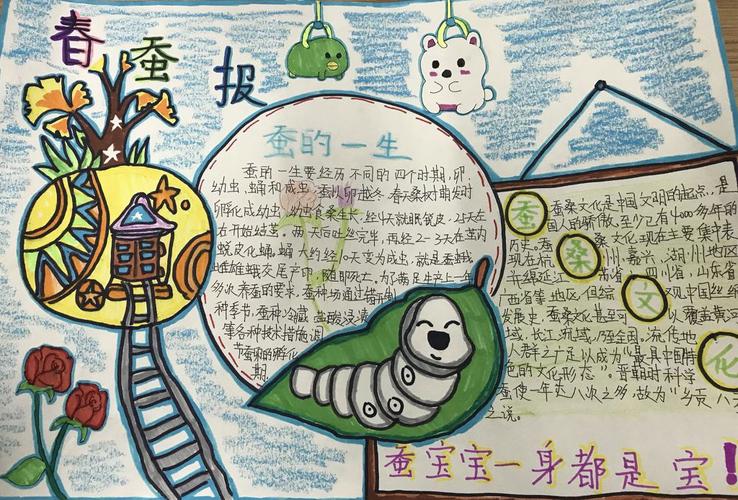 春蚕报
蚕的一生
蚕的一生要经历不同的四个时期,卵
幼虫、蛹和成虫。蚕以卵越冬。春天桑树萌发时
孵化成幼虫,幼虫食桑生长,经4天就眠蜕皮,25天左
右开始结茧。两天后吐丝完毕,再经2-3天在茧内
蜕皮化蛹。蛹大约经10天变为成虫,就是蚕蛾
雌雄蛾交尾产卵,随即死亡。为了满足生产上一年
多次养蚕的要求,蚕种场通过错开制
种季节,蚕种冷藏、盐酸浸渍
等各种技术措施,调
蚕卵的孵化
期。
蚕桑文化
蚕桑文化是中国文明的起点,是
国人的骄傲,至少已有4000多年的
历史。蚕桑文化现在主要集中表
现在杭州、嘉兴、湖州地区
省、四川省、山东省
西省等地区,但综观中国丝绸
发展史,蚕桑文化甚至可以覆盖黄河
域,长江流域,乃至全国。流传地
人群之广足以成为“最具中国特
色的文化形态”。晋朝时科学
蚕使一年
八次之多,故为“
之说。
蚕宝宝一身都是宝!